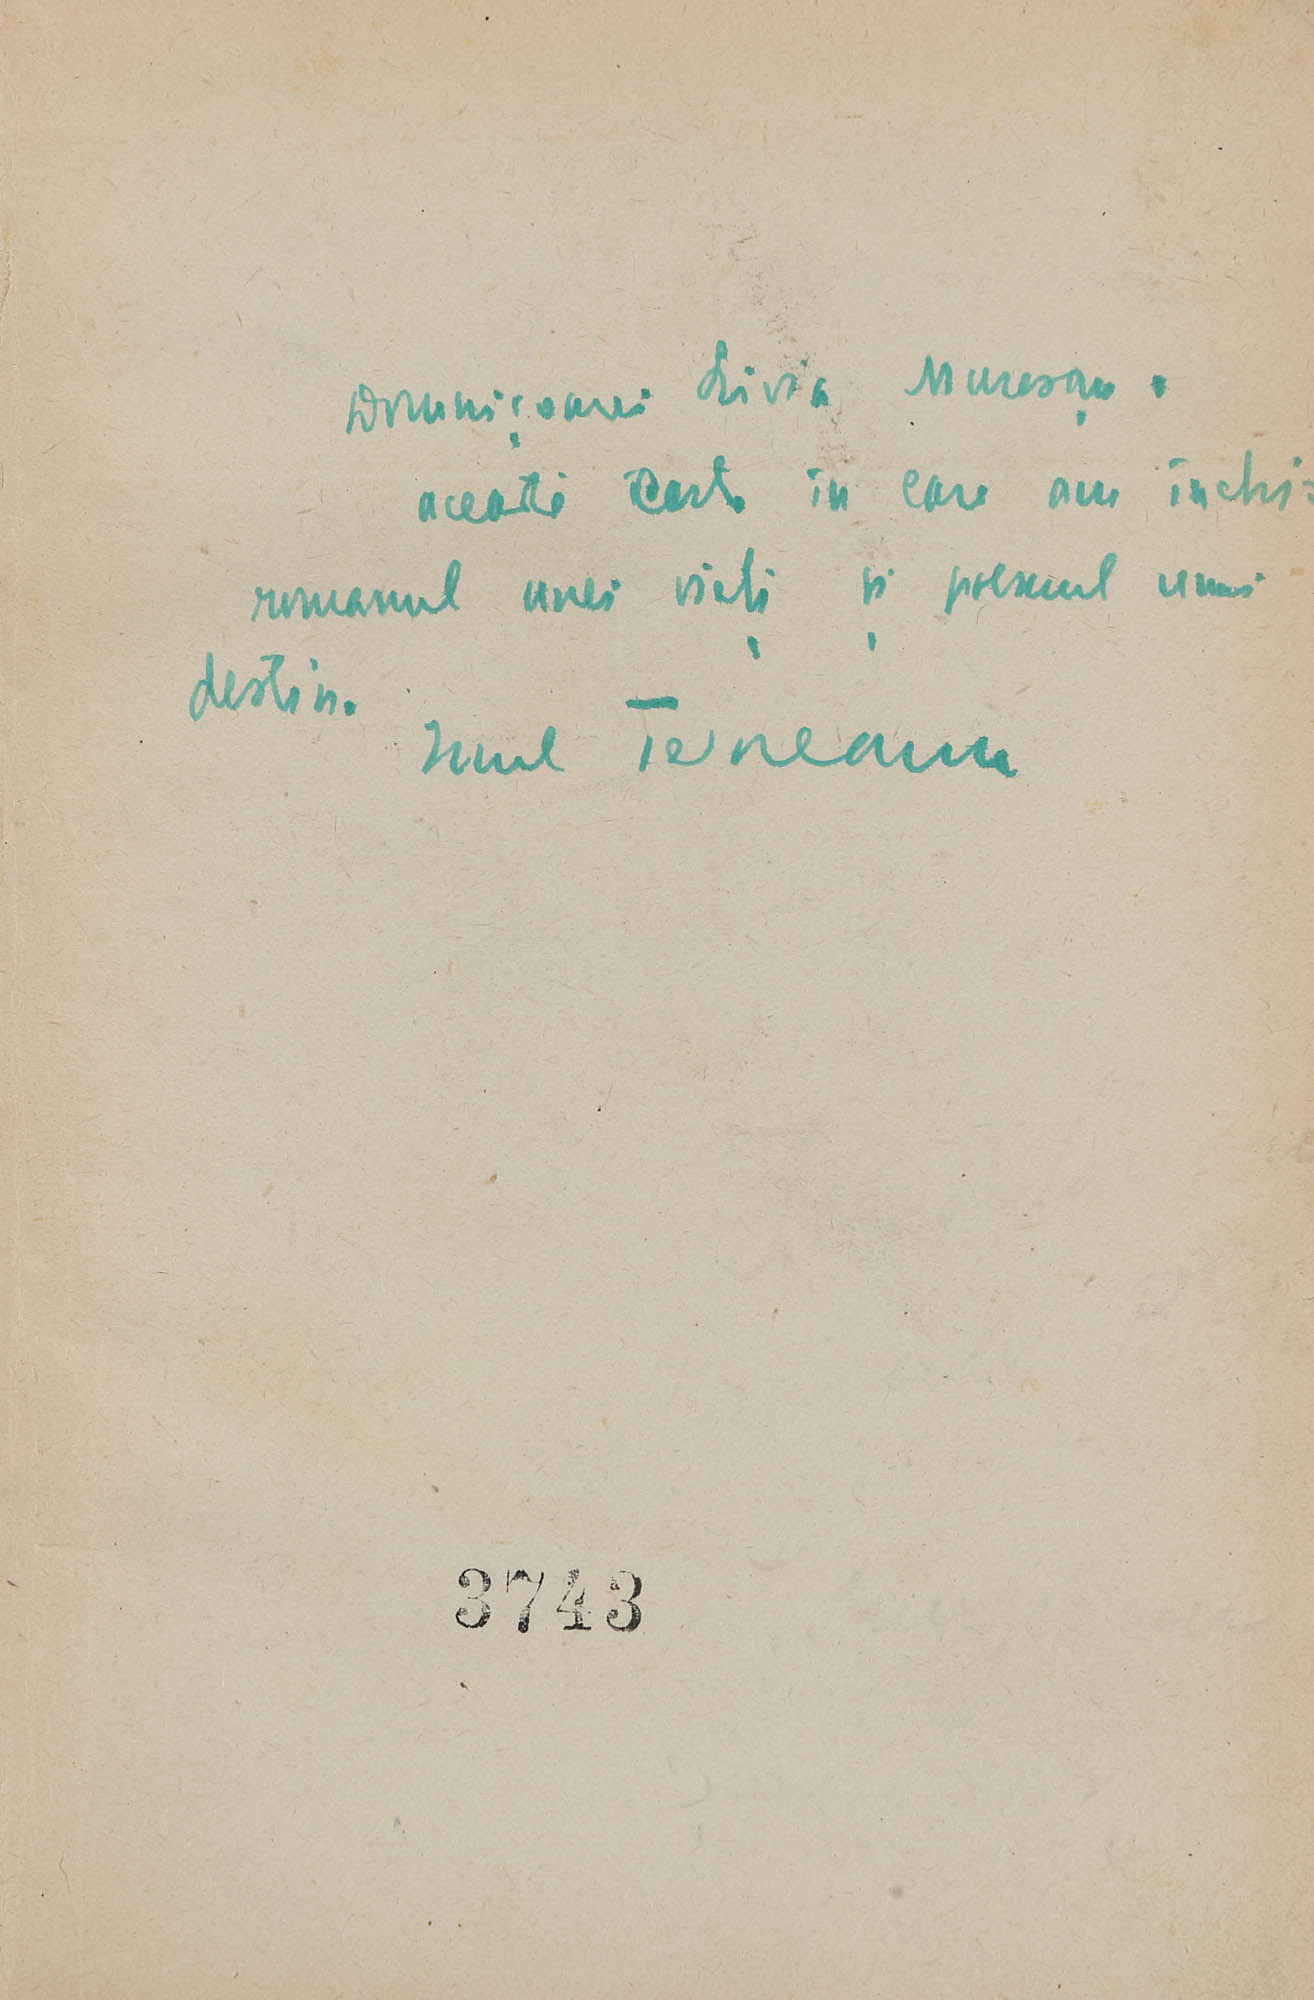 Domnișoarei Livia Mureșanu.
această carte în care am închi=
romanul unei vieți și poemul unui
destin.
Ionel Teodoreanu
3743